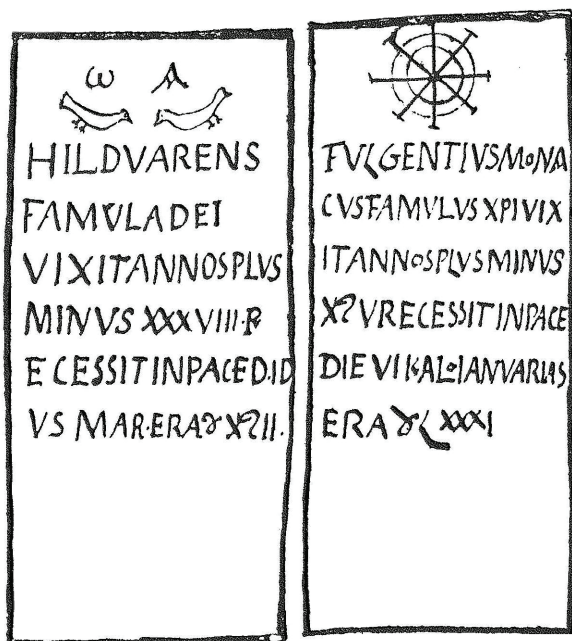 ω A
HILDVARENS
FAMVLADEI
VIXITANNOSPLVS
MINVS XXXVIII·R
ECESSITINPACED·ID
VS MAR·ERAɣXՂII·
FVLGENTIVSMONA
CVSFAMVLVSXPIVIX
ITANNOSPLVSMINVS
XՂVRECESSITINPACE
DIEVIKAL·IANVARIAS
ERAɣLXXXI